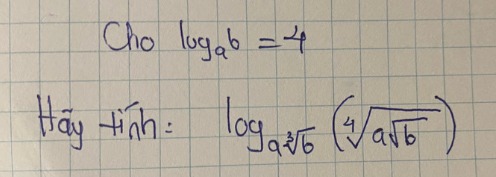 Cho log_a b = 4
Hãy tính: log_{a∛b} (∜(a√b))